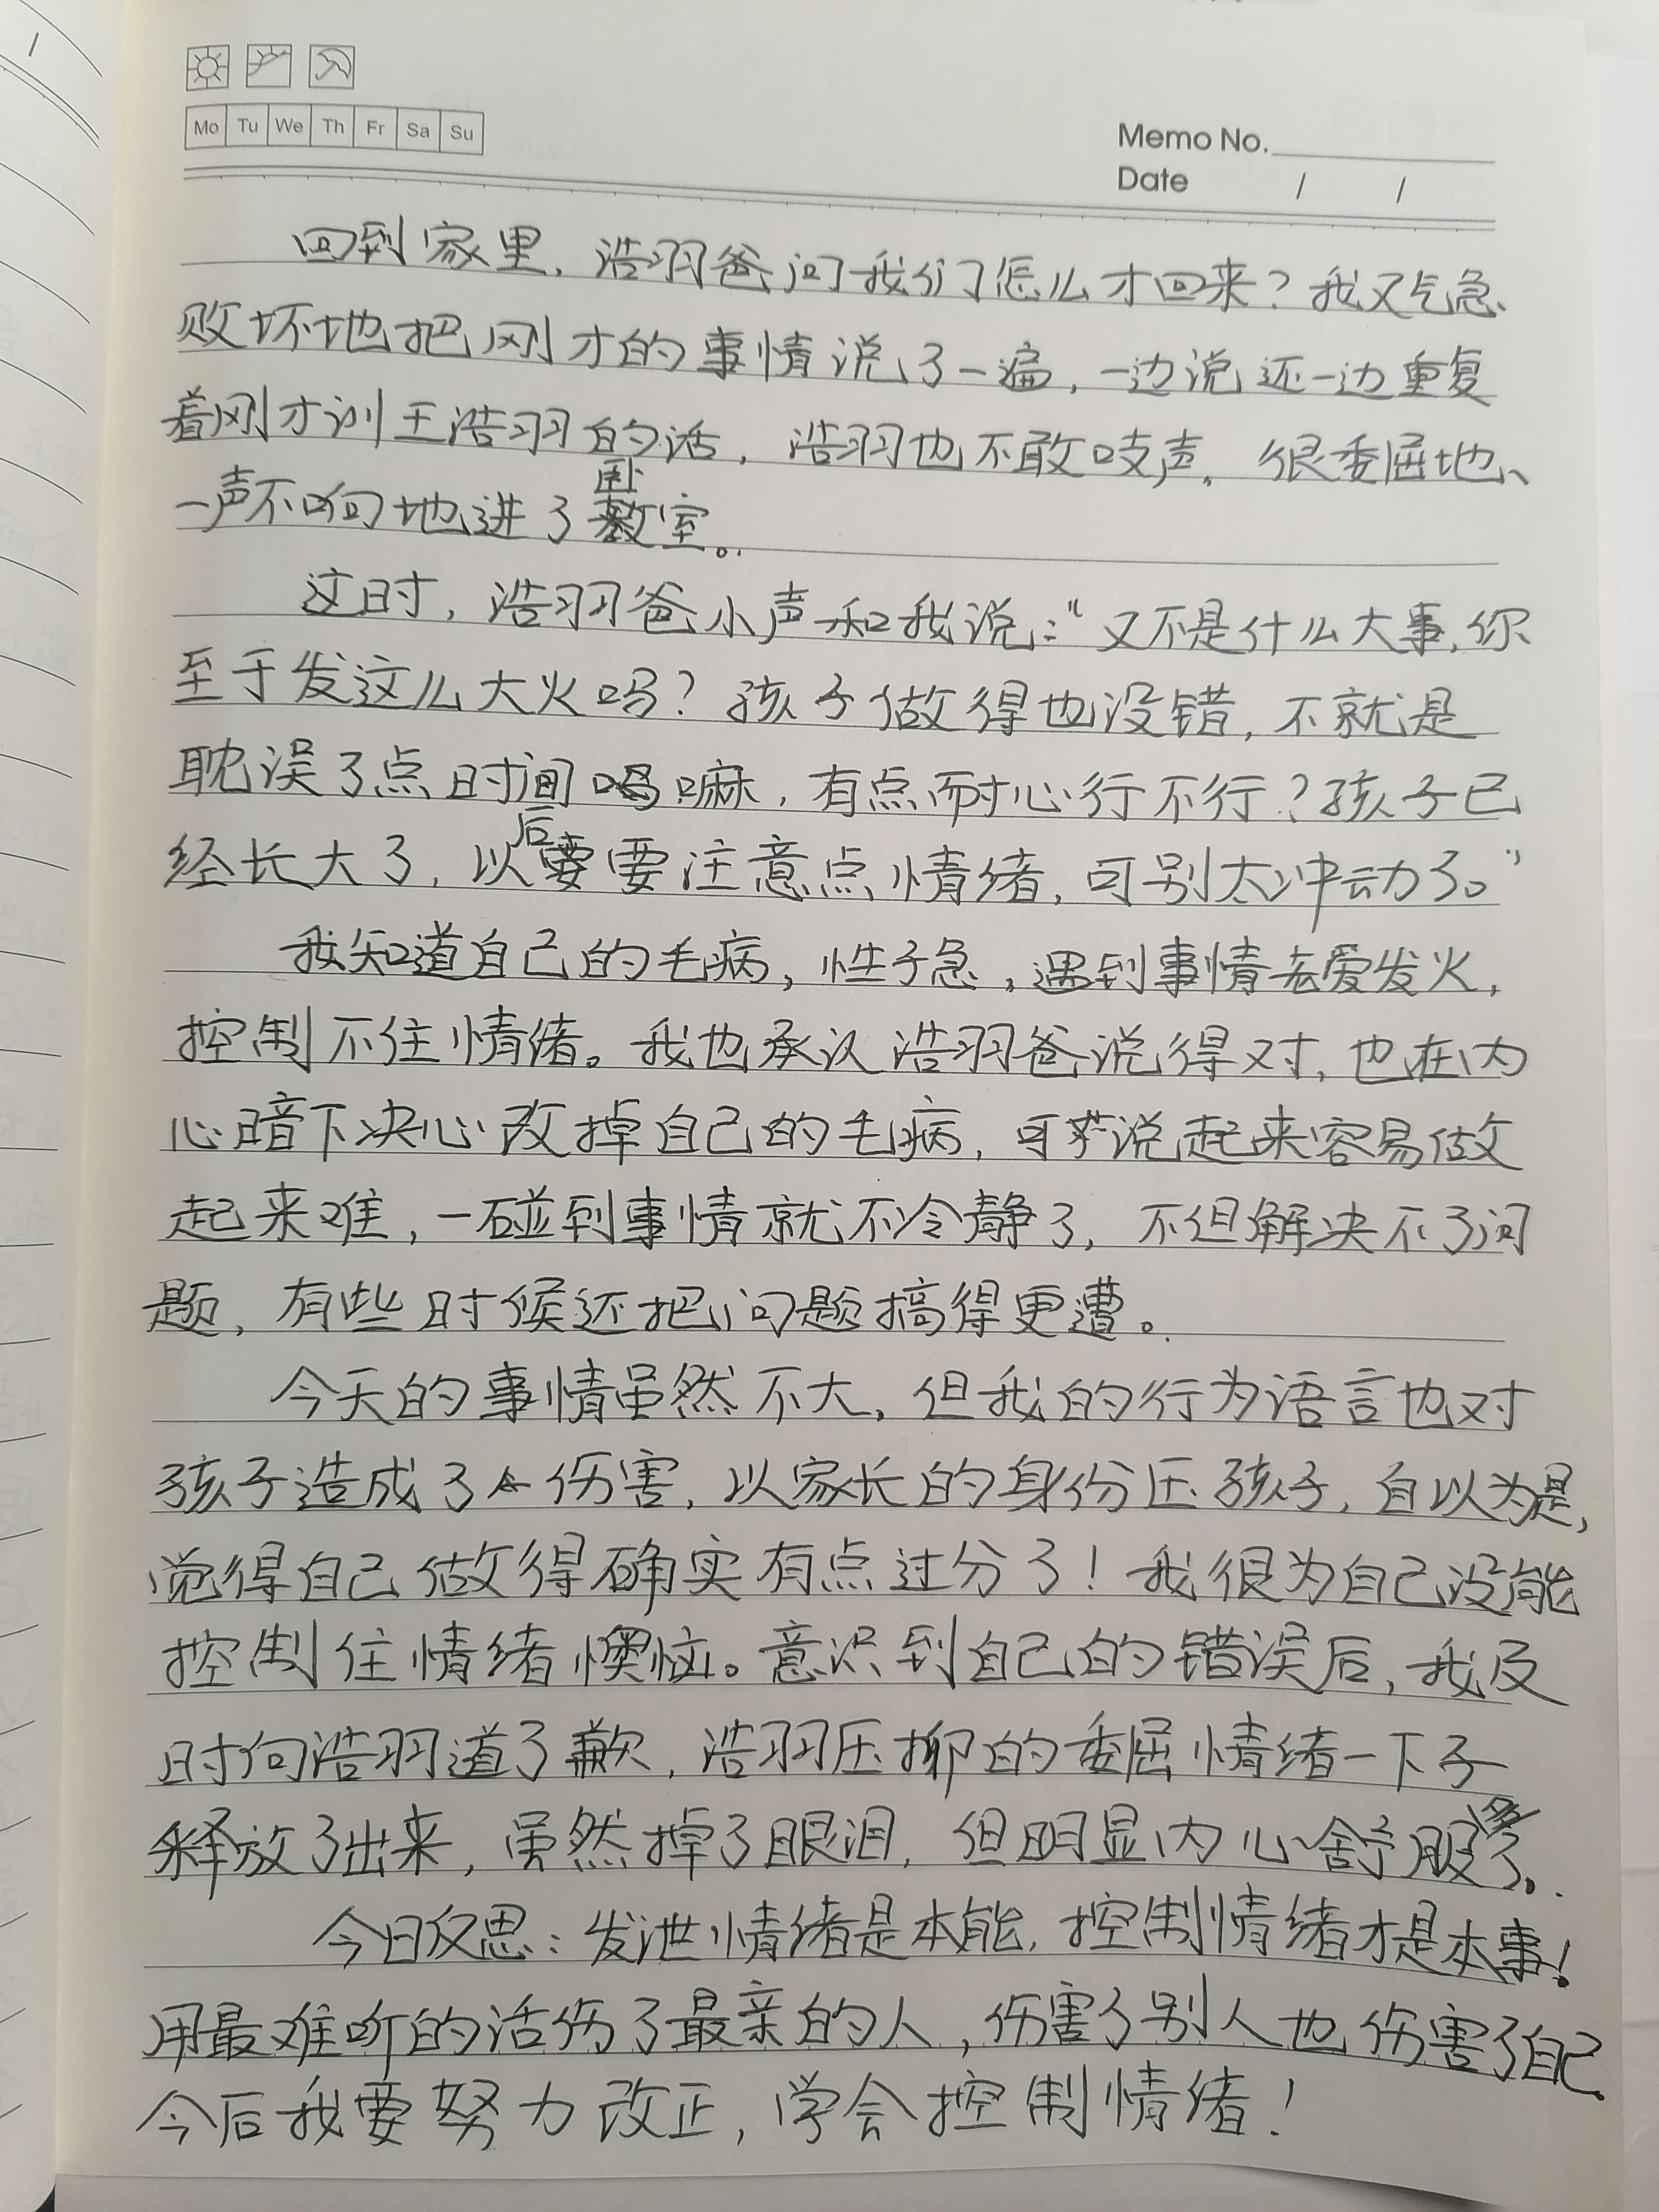 Mo Tu We Th Fr Sa Su
Memo No.
Date / /
回到家里，浩羽爸问我们怎么才回来？我又气急
败坏地把刚才的事情说了一遍，一边说还一边重复
着刚才训王浩羽的话，浩羽也不敢吱声，很委屈地、
一声不响地进了卧室。
这时，浩羽爸小声和我说：“又不是什么大事，你
至于发这么大火吗？孩子做得也没错，不就是
耽误了点时间嘛，有点耐心行不行？孩子已
经长大了，以后要注意点情绪，可别太冲动了。”
我知道自己的毛病，性子急，遇到事情爱发火，
控制不住情绪。我也承认浩羽爸说得对，也在内
心暗下决心改掉自己的毛病，可说起来容易做
起来难，一碰到事情就不冷静了，不但解决不了问
题，有些时候还把问题搞得更遭。
今天的事情虽然不大，但我的行为语言也对
孩子造成了伤害，以家长的身份压孩子，自以为是，
觉得自己做得确实有点过分了！我很为自己没能
控制住情绪懊恼。意识到自己的错误后，我及
时向浩羽道了歉，浩羽压抑的委屈情绪一下子
释放了出来，虽然掉了眼泪，但明显内心舒服多了。
今日反思：发泄情绪是本能，控制情绪才是本事！
用最难听的话伤了最亲的人，伤害了别人也伤害了自己
今后我要努力改正，学会控制情绪！